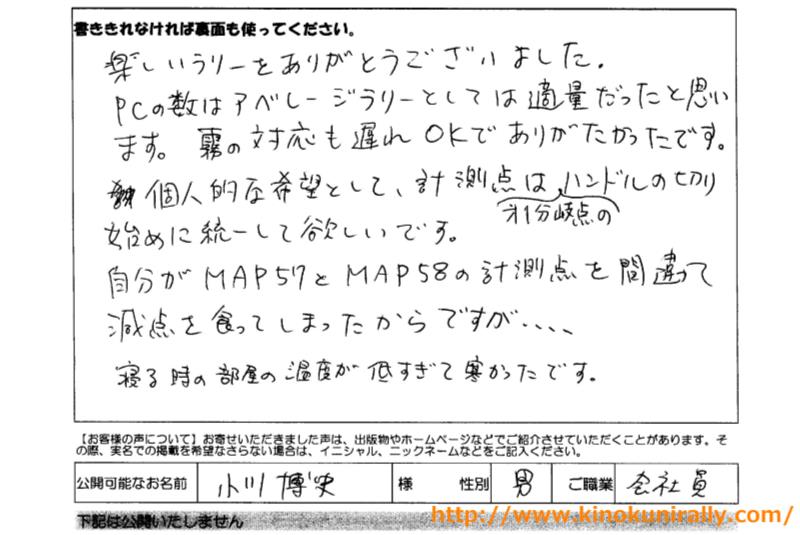 書ききれなければ裏面も使ってください。
楽しいラリーをありがとうございました。
PCの数はアベレージラリーとしては適量だったと思い
ます。霧の対応も遅れOKでありがたかったです。
個人的な希望として、計測点は、ハンドルの切り
才1分岐点の
始めに統一して欲しいです。
自分がMAP57とMAP58の計測点を間違って
減点を食ってしまったからですが、、、、
寝る時の部屋の温度が低すぎて寒かったです。
【お客様の声について】お寄せいただきました声は、出版物やホームページなどでご紹介させていただくことがあります。そ
の際、実名での掲載を希望なさらない場合は、イニシャル、ニックネームなどをご記入ください。
公開可能なお名前 小川 博史 様 性別 男 ご職業 会社員
下記は公開いたしません
http://www.kinokunirally.com/